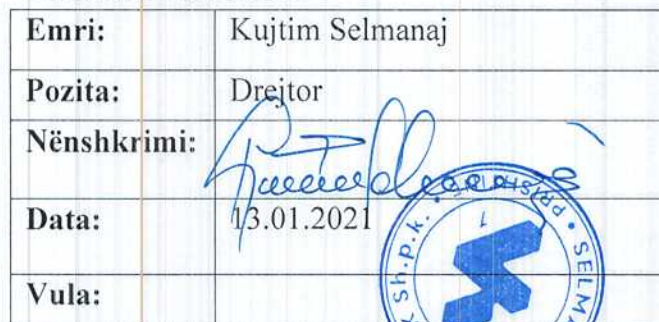 Emri: Kujtim Selmanaj
Pozita: Drejtor
Nënshkrimi:
Data: 13.01.2021
Vula:
Sh.p.k. • PRISHTINË • SELMA
1